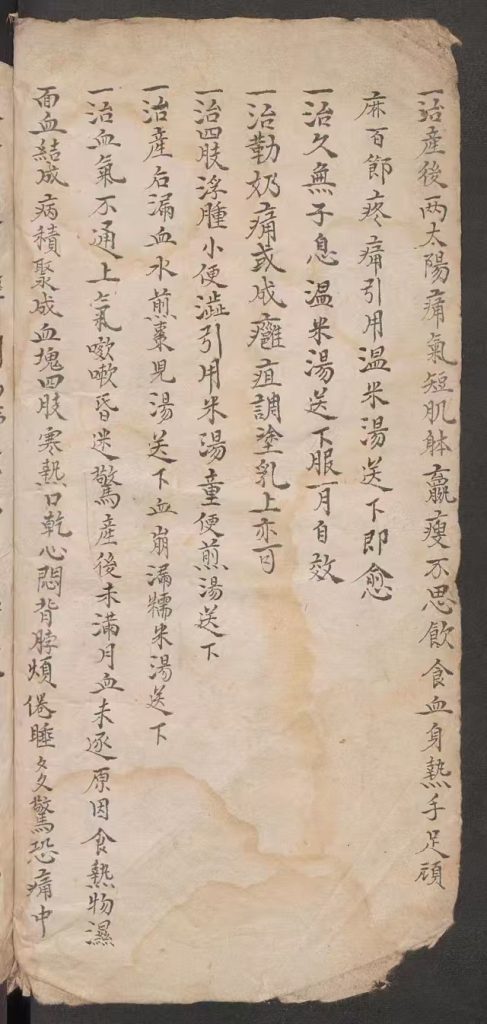 一治產後两太陽痛氣短肌躰羸瘦不思飲食血身熱手足頑
麻百節疼痛引用温米湯送下即愈
一治久無子息温米湯送下服一月自效
一治勒奶痛或成癰疽調塗乳上亦可
一治四肢浮腫小便澁引用米湯童便煎湯送下
一治產后漏血水煎棗兒湯送下血崩漏糯米湯送下
一治血氣不通上氣嗽嗽昏迷驚產後未滿月血未逐原因食熱物濕
面血結成病積聚成血塊四肢寒熱口乾心悶背脖煩倦睡多驚恐痛中